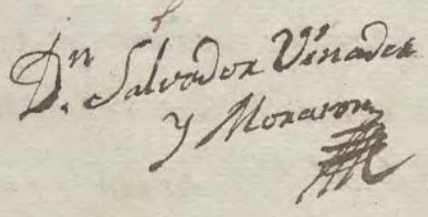 Dn. Salvador Vinader
y Moratron